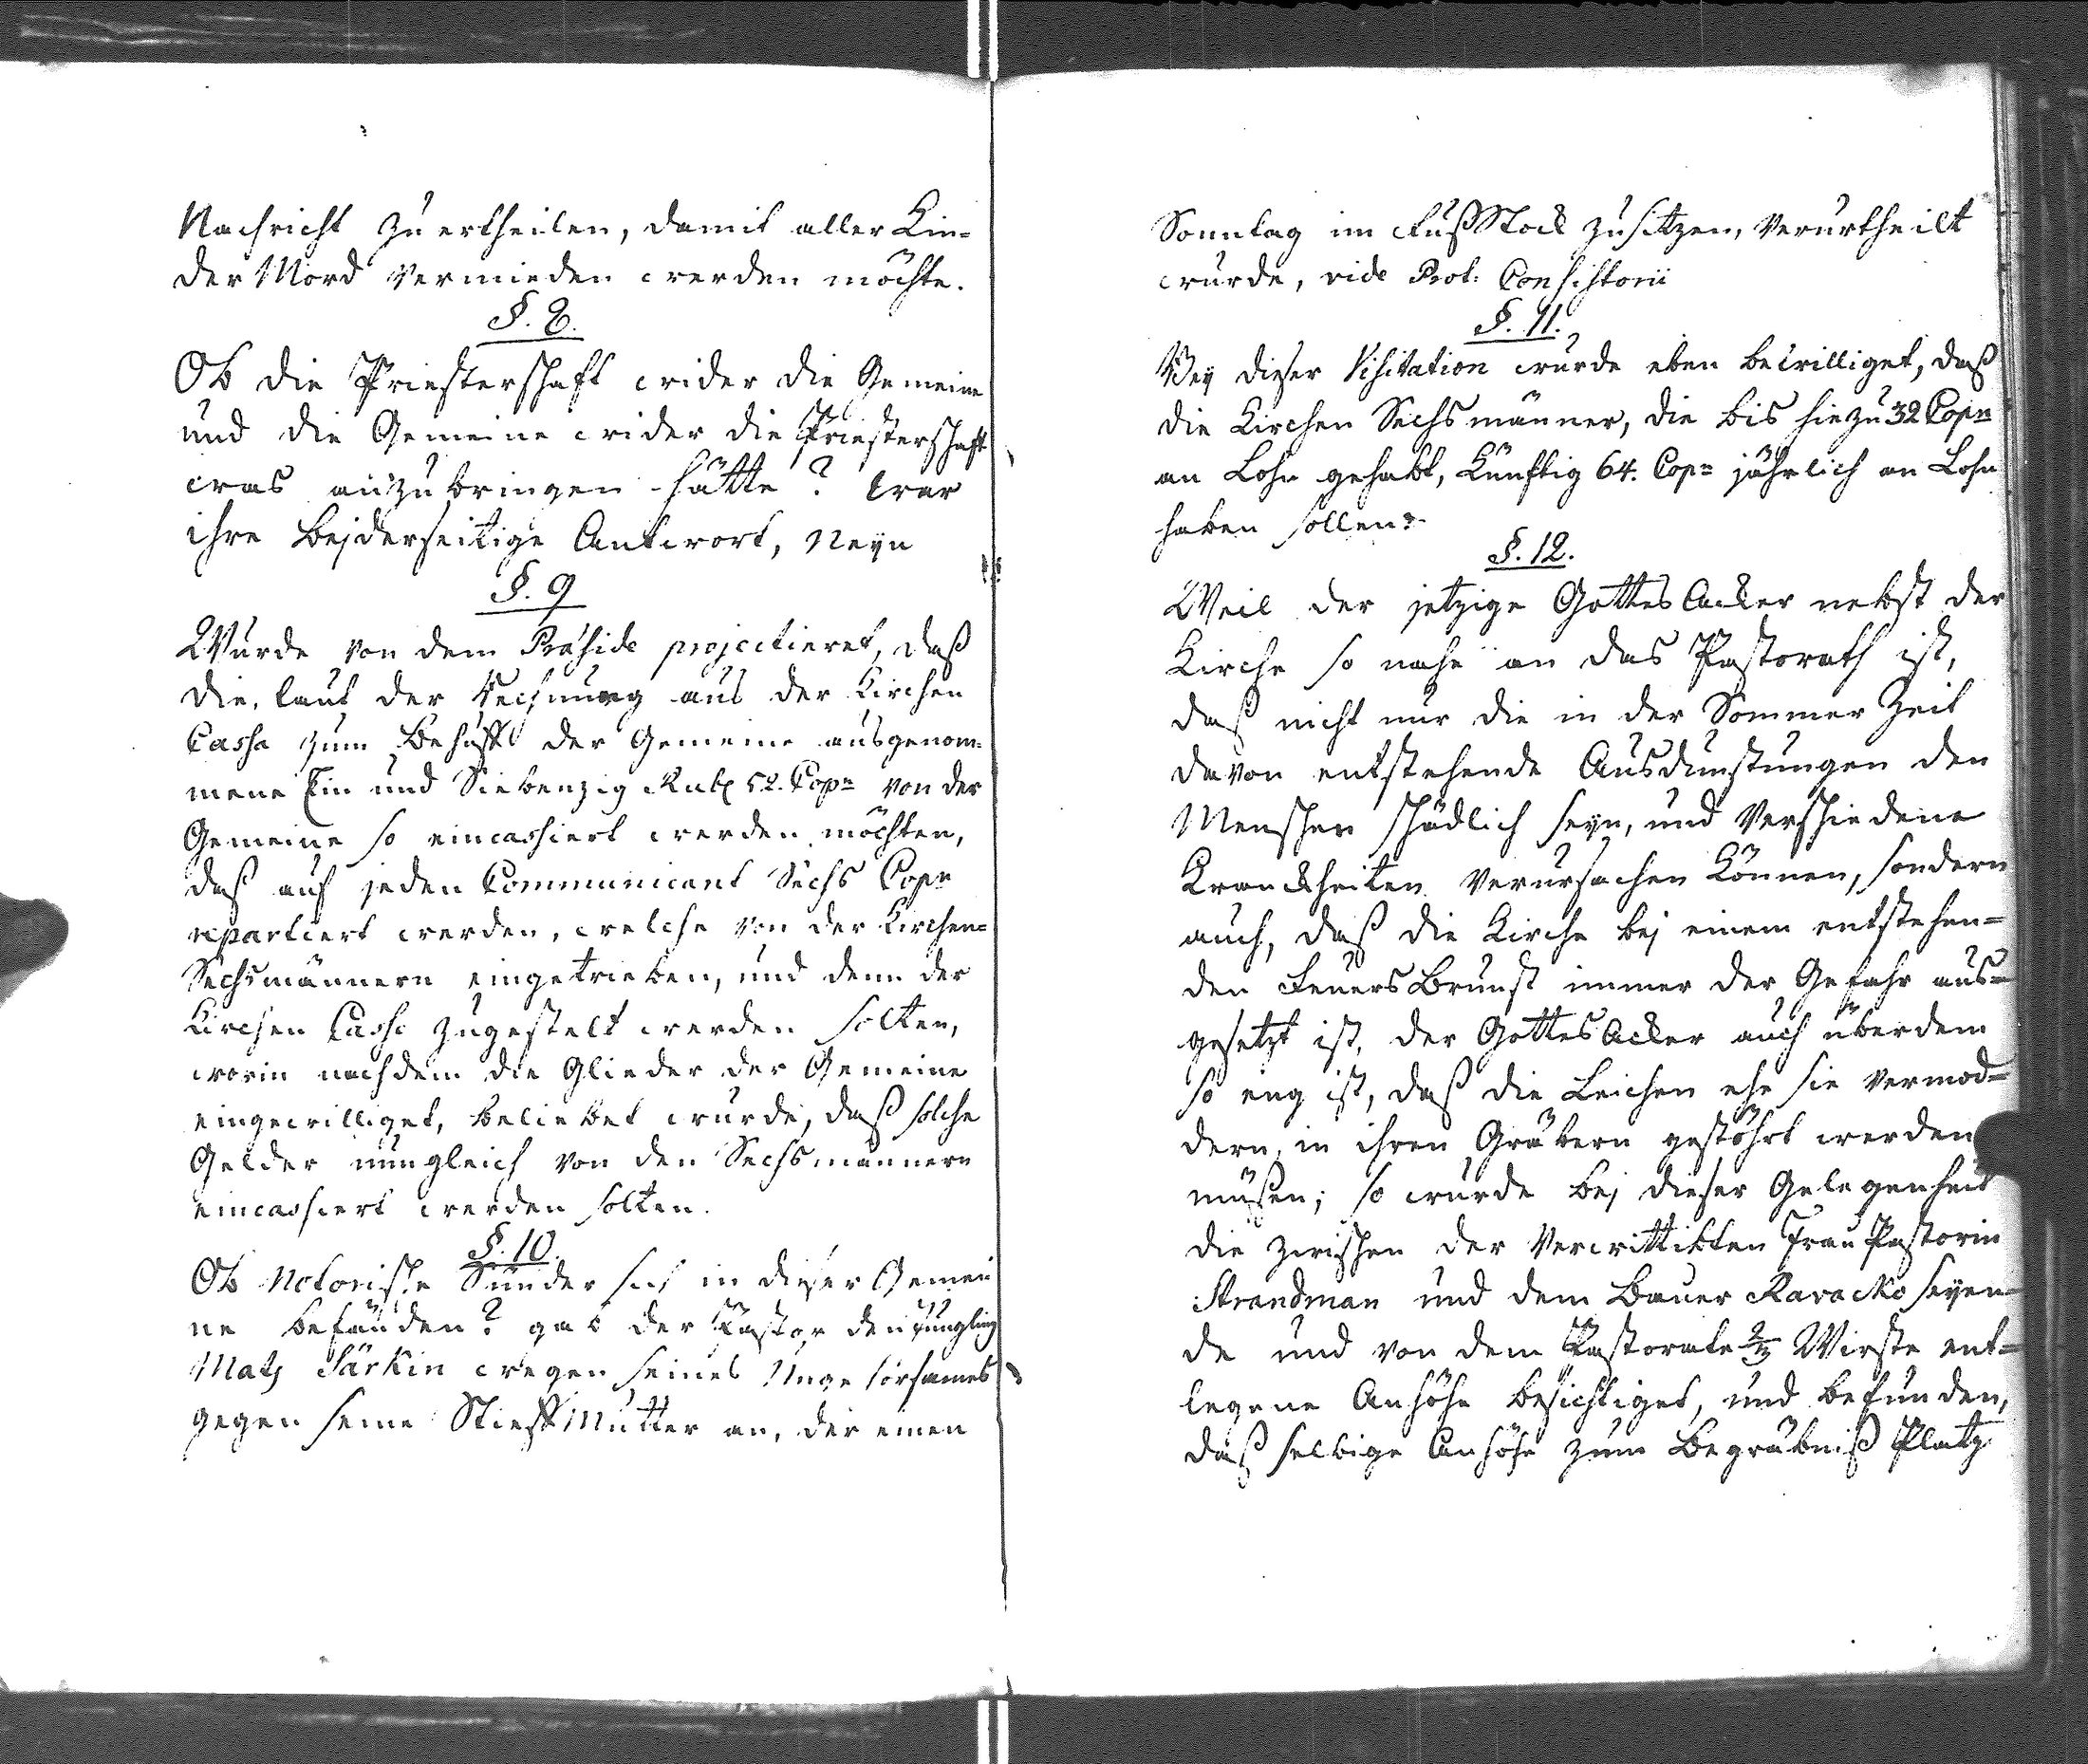 Nachricht zu ertheilen, damit aller Kin-
der Mord vermieden werden möchte.
§. 8.
Ob die Priesterschaft wider die Gemeine
und die Gemeine wider die Priesterschaft
was anzubringen hätte? war
ihre beyderseitige Antwort, Neyn
§. 9
Wurde von dem Präside projectieret, daß
die, laut der Rechnung aus der Kirchen
Cassa zum Behuff der Gemeine ausgenom-
mene Ein und Siebenzig Rub. 52. Cop: von der
Gemeine so eincassiert werden möchten,
daß auf jeden Communicant Sechs Cop:
repartiert werden, welche von der Kirchen-
Sechsmännern eingetrieben, und denn der
Kirchen Casse zugestelt werden solten,
worin nachdem die Glieder der Gemeine
eingewilliget, beliebet wurde, daß solche
Gelder nun gleich von den Sechsmännern
eincassiert werden solten.
§. 10.
Ob Notorische Sünder sich in dieser Gemei
ne befänden? gab der Pastor den Jüngling
Mats Särkin wegen seines Ungehorsames
gegen seine Stieff Mutter an, der einen
Sonntag im Fuß Stock zu sitzen, verurtheilt
wurde, vide Prot: Consistorii
§. 11.
Bey dieser Visitation wurde eben bewilliget, daß
die Kirchen Sechsmänner, die bis hiezu 32 Cop:
an Lohn gehabt, künftig 64. Cop: jährlich an Lohn
haben sollen.
§. 12.
Weil der jetzige Gottes Acker nebst der
Kirche so nahe an das Pastorath ist,
daß nicht nur die in der Sommer Zeit
davon entstehende Ausdünstungen den
Menschen schädlich seyn, und verschiedene
Kranckheiten verursachen können, sondern
auch, daß die Kirche bej einem entstehen-
den Feuers Brunst immer der Gefahr aus-
gesetzt ist, der Gottes Acker auch überdem
so eng ist, daß die Leichen ehe sie vermod-
dern, in ihren Gräbern gestöhrt werden
müßen; so wurde bej dieser Gelegenheit
die zwischen der verwittibten Frau Pastorin
Strandman und dem Bauer Ravacko seyen-
de und von dem Pastorate 2/3 Wirste ent-
legene Anhöhe besichtiget, und befunden,
daß selbige Anhöhe zum Begräbniß Platz